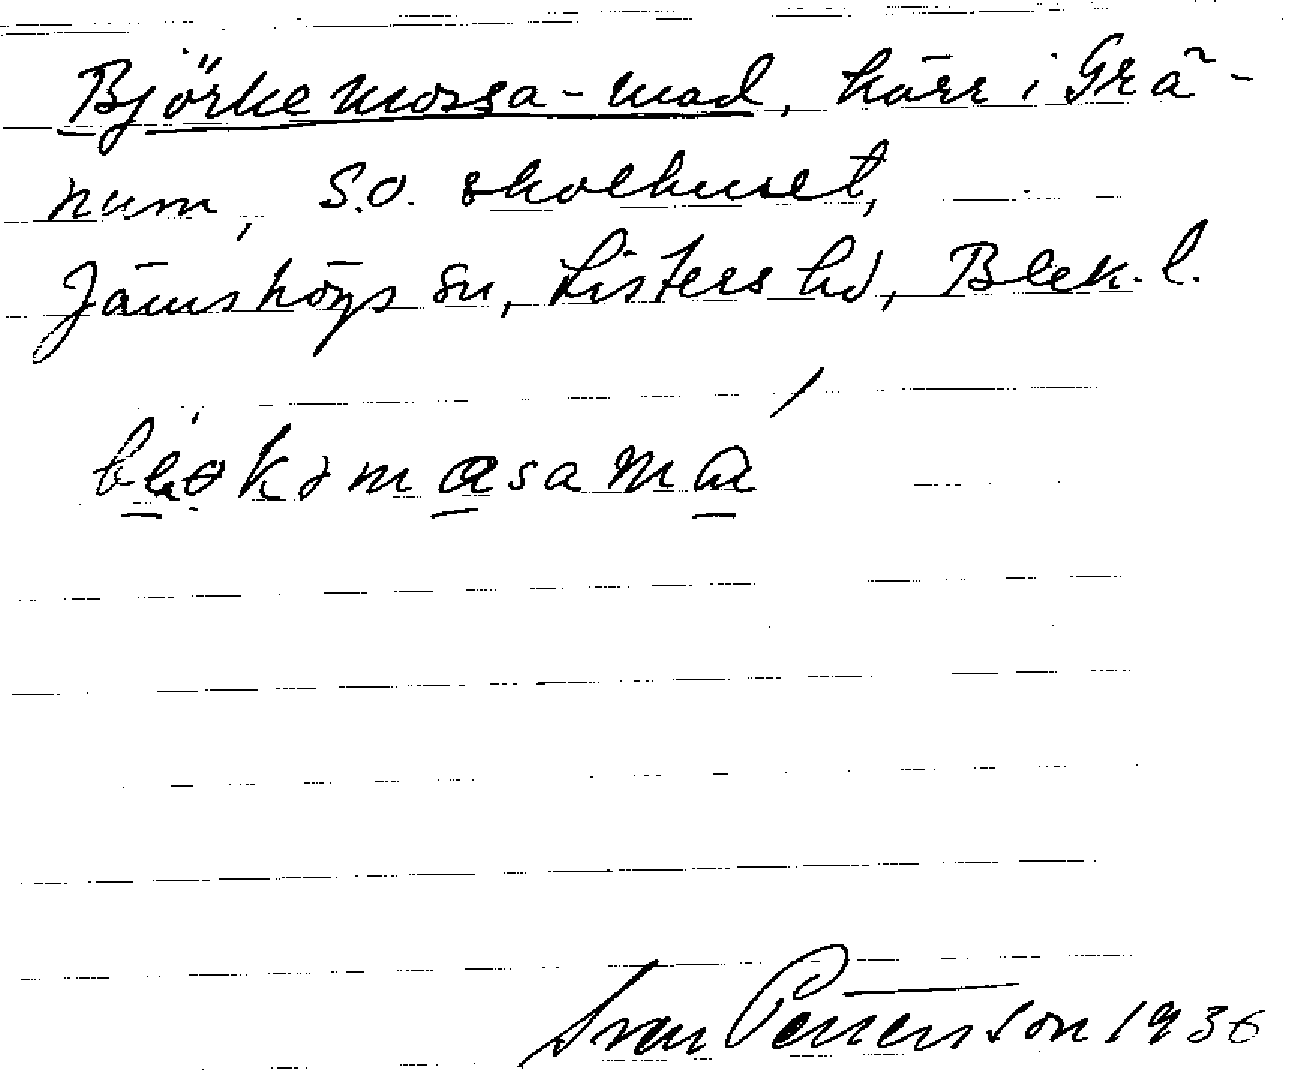 Björkemossa-mad, kärr i Grä-
num, S.O. skolhuset,
Jämshögs sn, Listers hd, Blek. l.
Ivar Pettersson 1936